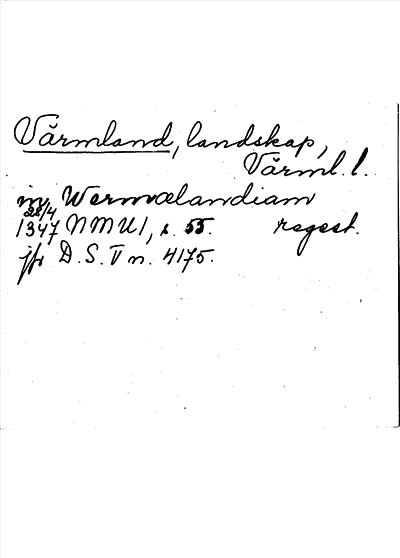 Värmland, landskap,
Värml. l.
in Wermælandiam
28/4
1347 NMU 1, s. 55. regest.
jfr D. S. V n. 4175.